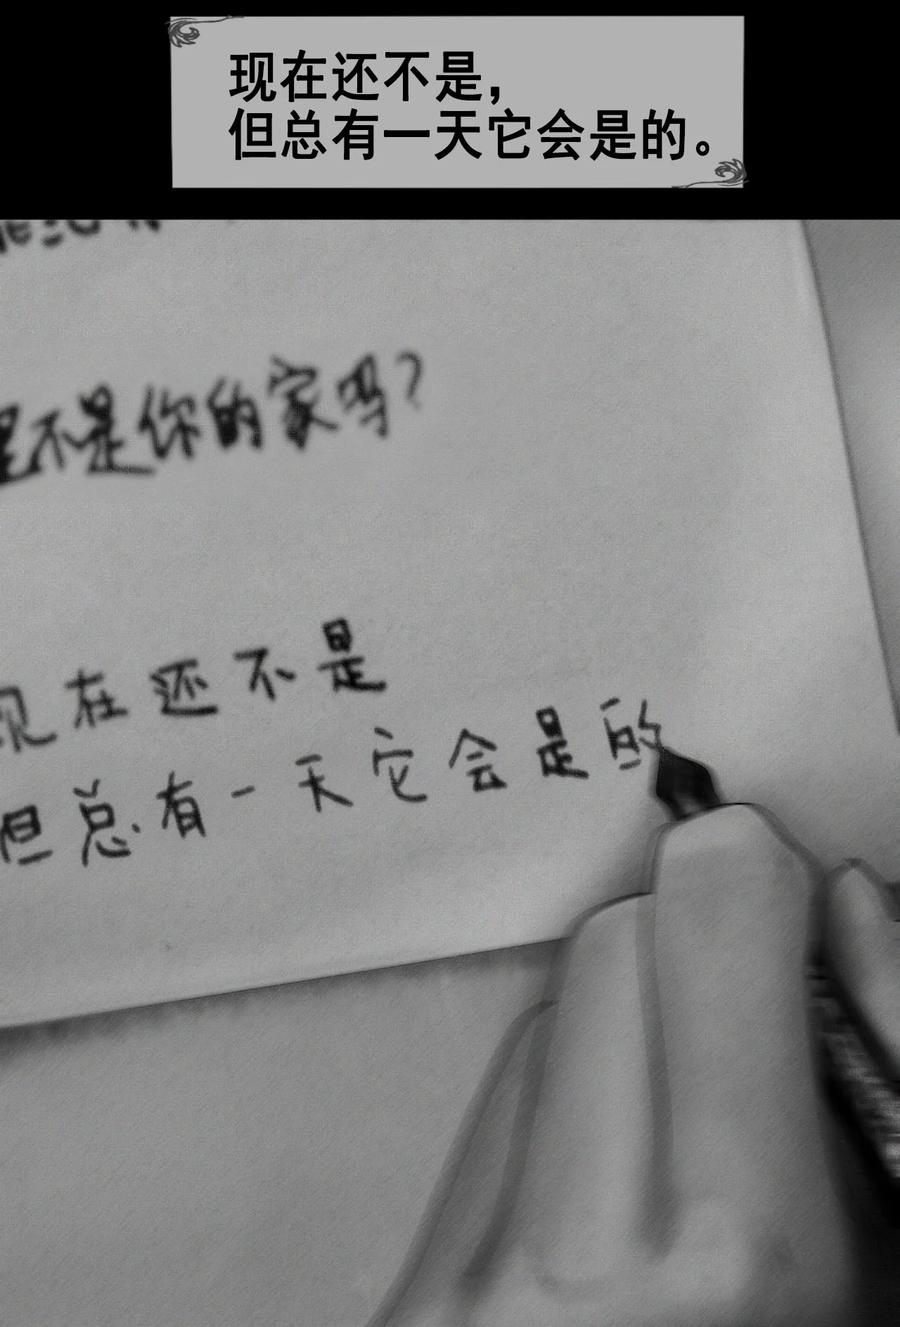 现在还不是，
但总有一天它会是的。
不是你的家吗？
现在还不是
但总有一天它会是的